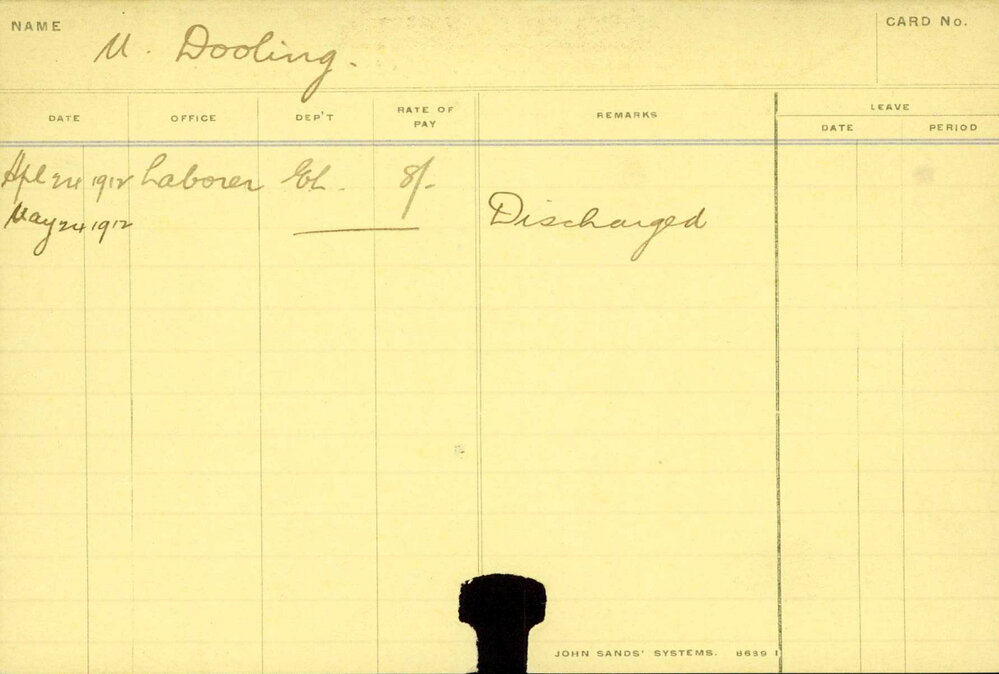 NAME M. Dooling. CARD No.
DATE OFFICE DEP'T RATE OF PAY REMARKS LEAVE
DATE PERIOD
Apl 24 1912 Laborer 8/-
May 24 1912 Discharged
JOHN SANDS' SYSTEMS. 8689